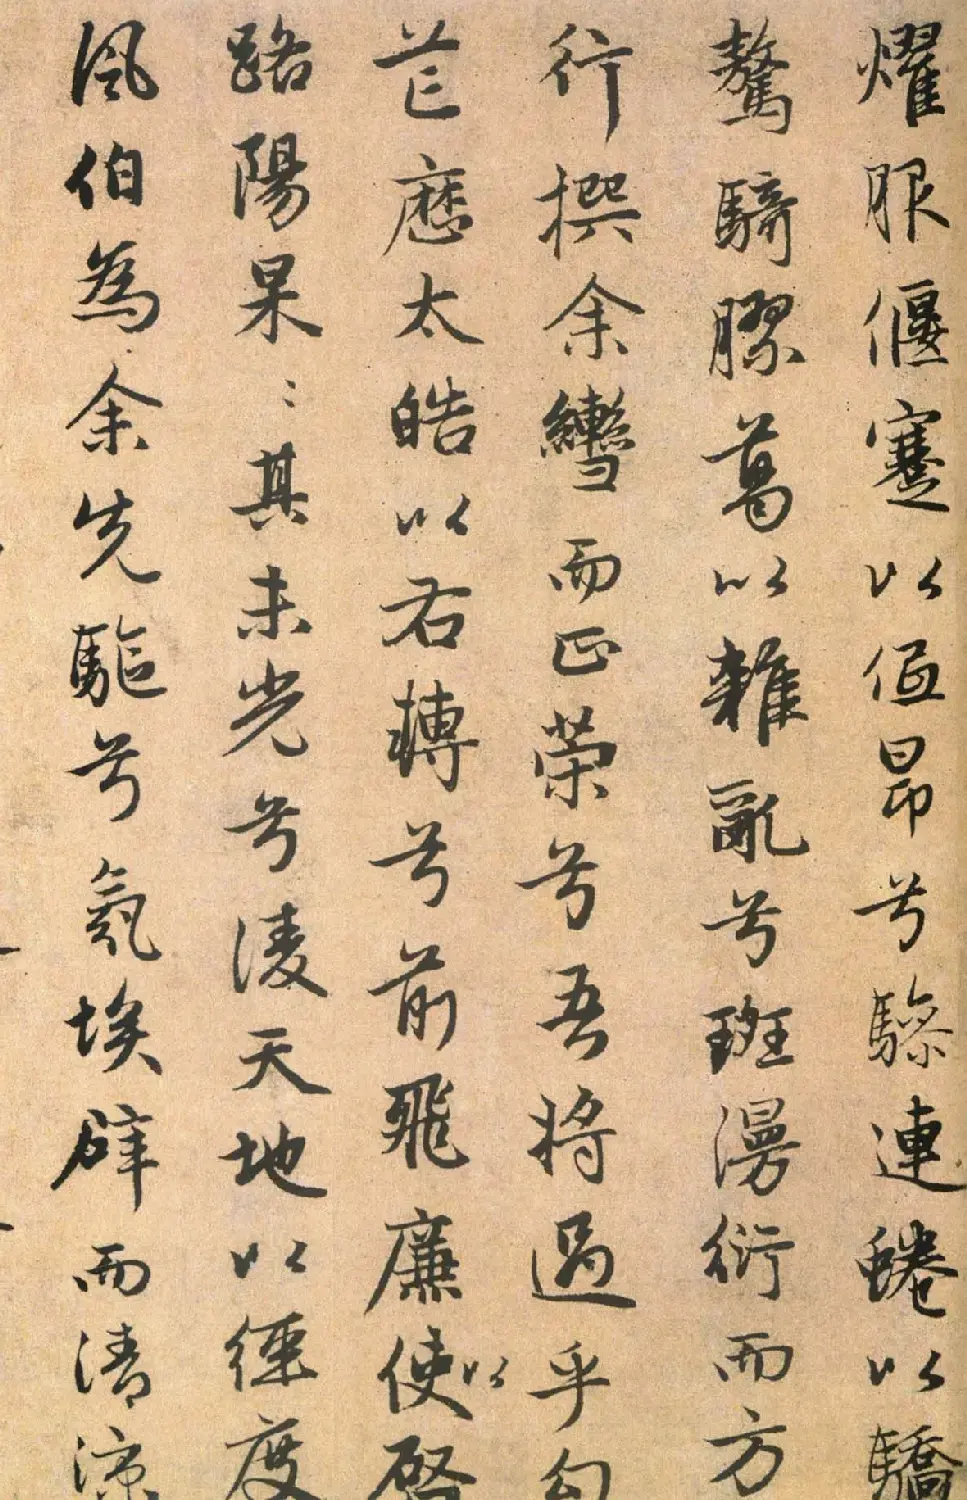 耀服偃蹇以低昂兮驂連蜷以驕
驁騎膠葛以雜亂兮斑漫衍而方
行撰余轡而正荣兮吾將過乎勾
芒歷太皓以右轉兮前飛廉使以啓
路陽杲〻其未光兮淩天地以徑度
風伯為余先驅兮氛埃辟而清涼